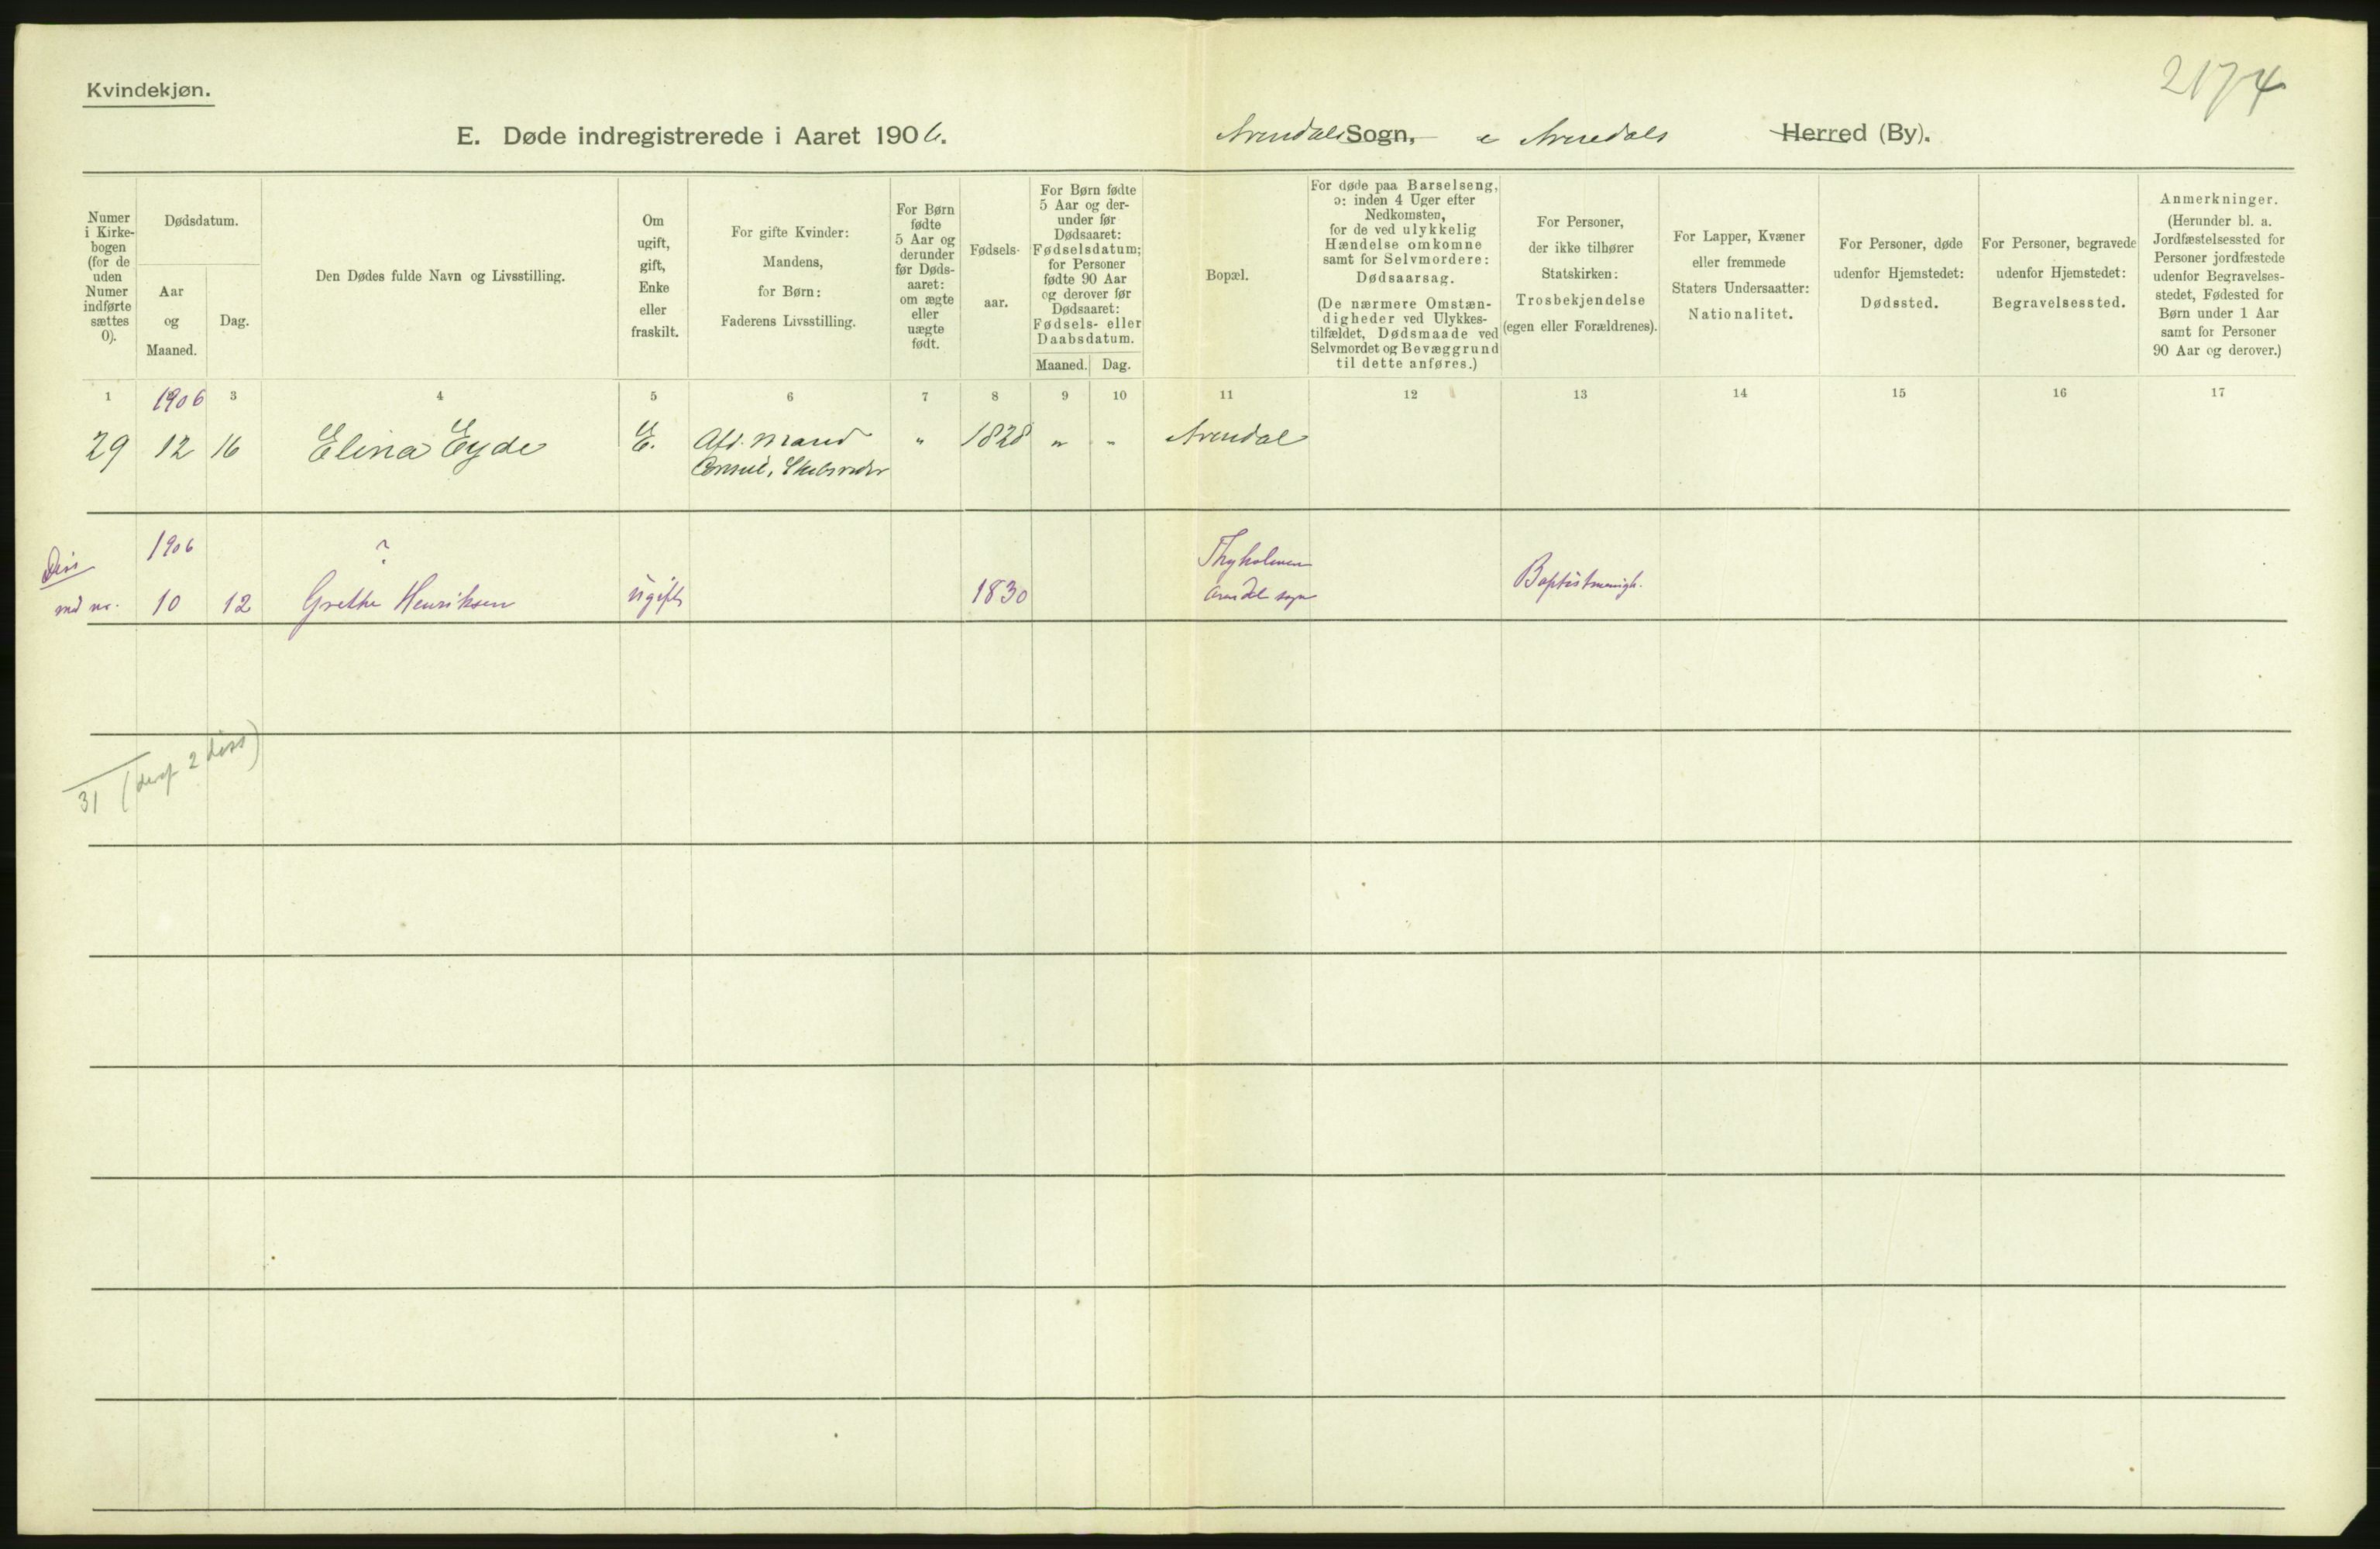 2174
Kvindekjøn.
E. Døde indregistrerede i Aaret 1906. Arendals Sogn, Arendals Herred (By).
Numer i Kirke-
bogen
(for de
uden
Numer
indførte
sættes
0).
Dødsdatum.
Aar
og
Maaned.
Dag.
Den Dødes fulde Navn og Livsstilling.
Om
ugift,
gift,
Enke
eller
fraskilt.
For gifte Kvinder:
Mandens,
for Børn:
Faderens Livsstilling.
For Børn
fødte
5 Aar og
derunder
før Døds-
aaret:
om ægte
eller
uægte
født.
Fødsels-
aar.
For Børn fødte
5 Aar og der-
under før
Dødsaaret:
Fødselsdatum;
for Personer
fødte 90 Aar
og derover før
Dødsaaret:
Fødsels- eller
Daabsdatum.
Maaned. Dag.
Bopæl.
For døde paa Barselseng,
ɔ: inden 4 Uger efter
Nedkomsten,
for de ved ulykkelig
Hændelse omkomne
samt for Selvmordere:
Dødsaarsag.
(De nærmere Omstæn-
digheder ved Ulykkes-
tilfældet, Dødsmaade ved
Selvmordet og Bevæggrund
til dette anføres.)
For Personer,
der ikke tilhører
Statskirken:
Trosbekjendelse
(egen eller Forældrenes).
For Lapper, Kvæner
eller fremmede
Staters Undersaatter:
Nationalitet.
For Personer, døde
udenfor Hjemstedet:
Dødssted.
For Personer, begravede
udenfor Hjemstedet:
Begravelsessted.
Anmerkninger.
(Herunder bl. a.
Jordfæstelsessted for
Personer jordfæstede
udenfor Begravelses-
stedet, Fødested for
Børn under 1 Aar
samt for Personer
90 Aar og derover.)
1 1906 3 4 5 6 7 8 9 10 11 12 13 14 15 16 17
29 12 16 Elina Eyde E. Afd. Mand " 1828 " " Arendal
Consul, Skibsreder
Diss 1906 ? Thyholmen
10 12 Grethe Henriksen ugift 1830 Arendal sogn Baptistmenigh.
31 (deraf 2 diss)